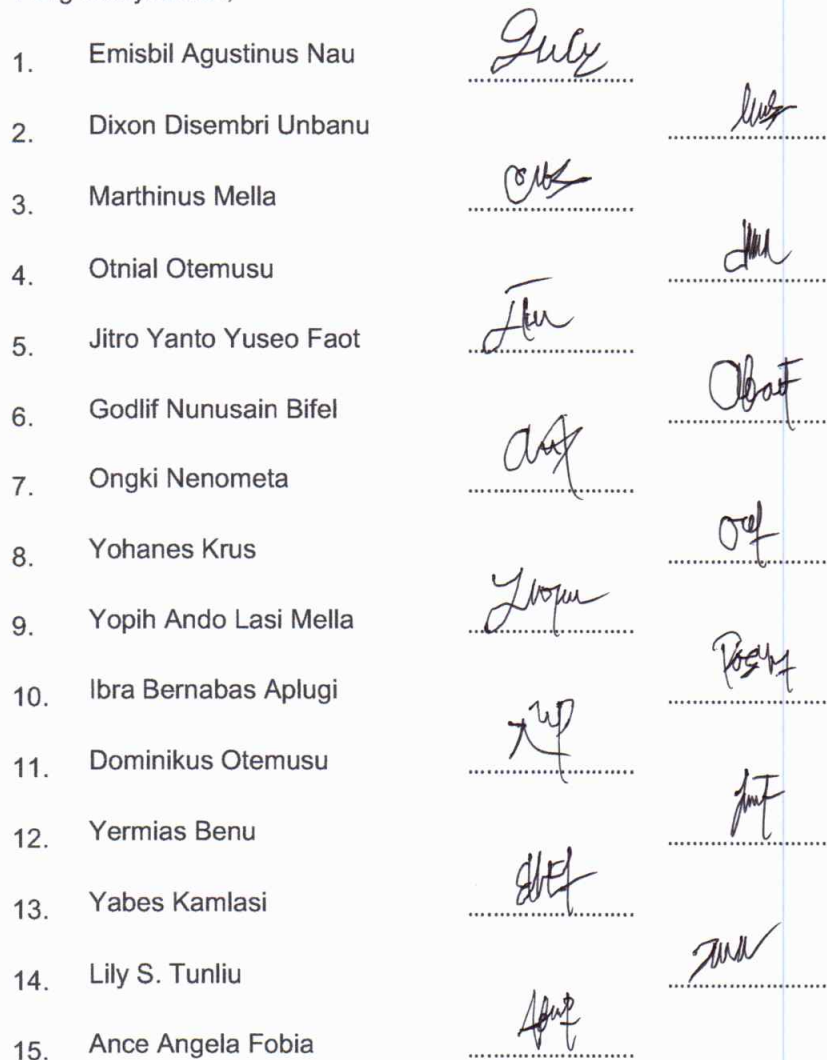 1. Emisbil Agustinus Nau ..............................
2. Dixon Disembri Unbanu ..............................
3. Marthinus Mella ..............................
4. Otnial Otemusu ..............................
5. Jitro Yanto Yuseo Faot ..............................
6. Godlif Nunusain Bifel ..............................
7. Ongki Nenometa ..............................
8. Yohanes Krus ..............................
9. Yopih Ando Lasi Mella ..............................
10. Ibra Bernabas Aplugi ..............................
11. Dominikus Otemusu ..............................
12. Yermias Benu ..............................
13. Yabes Kamlasi ..............................
14. Lily S. Tunliu ..............................
15. Ance Angela Fobia ..............................